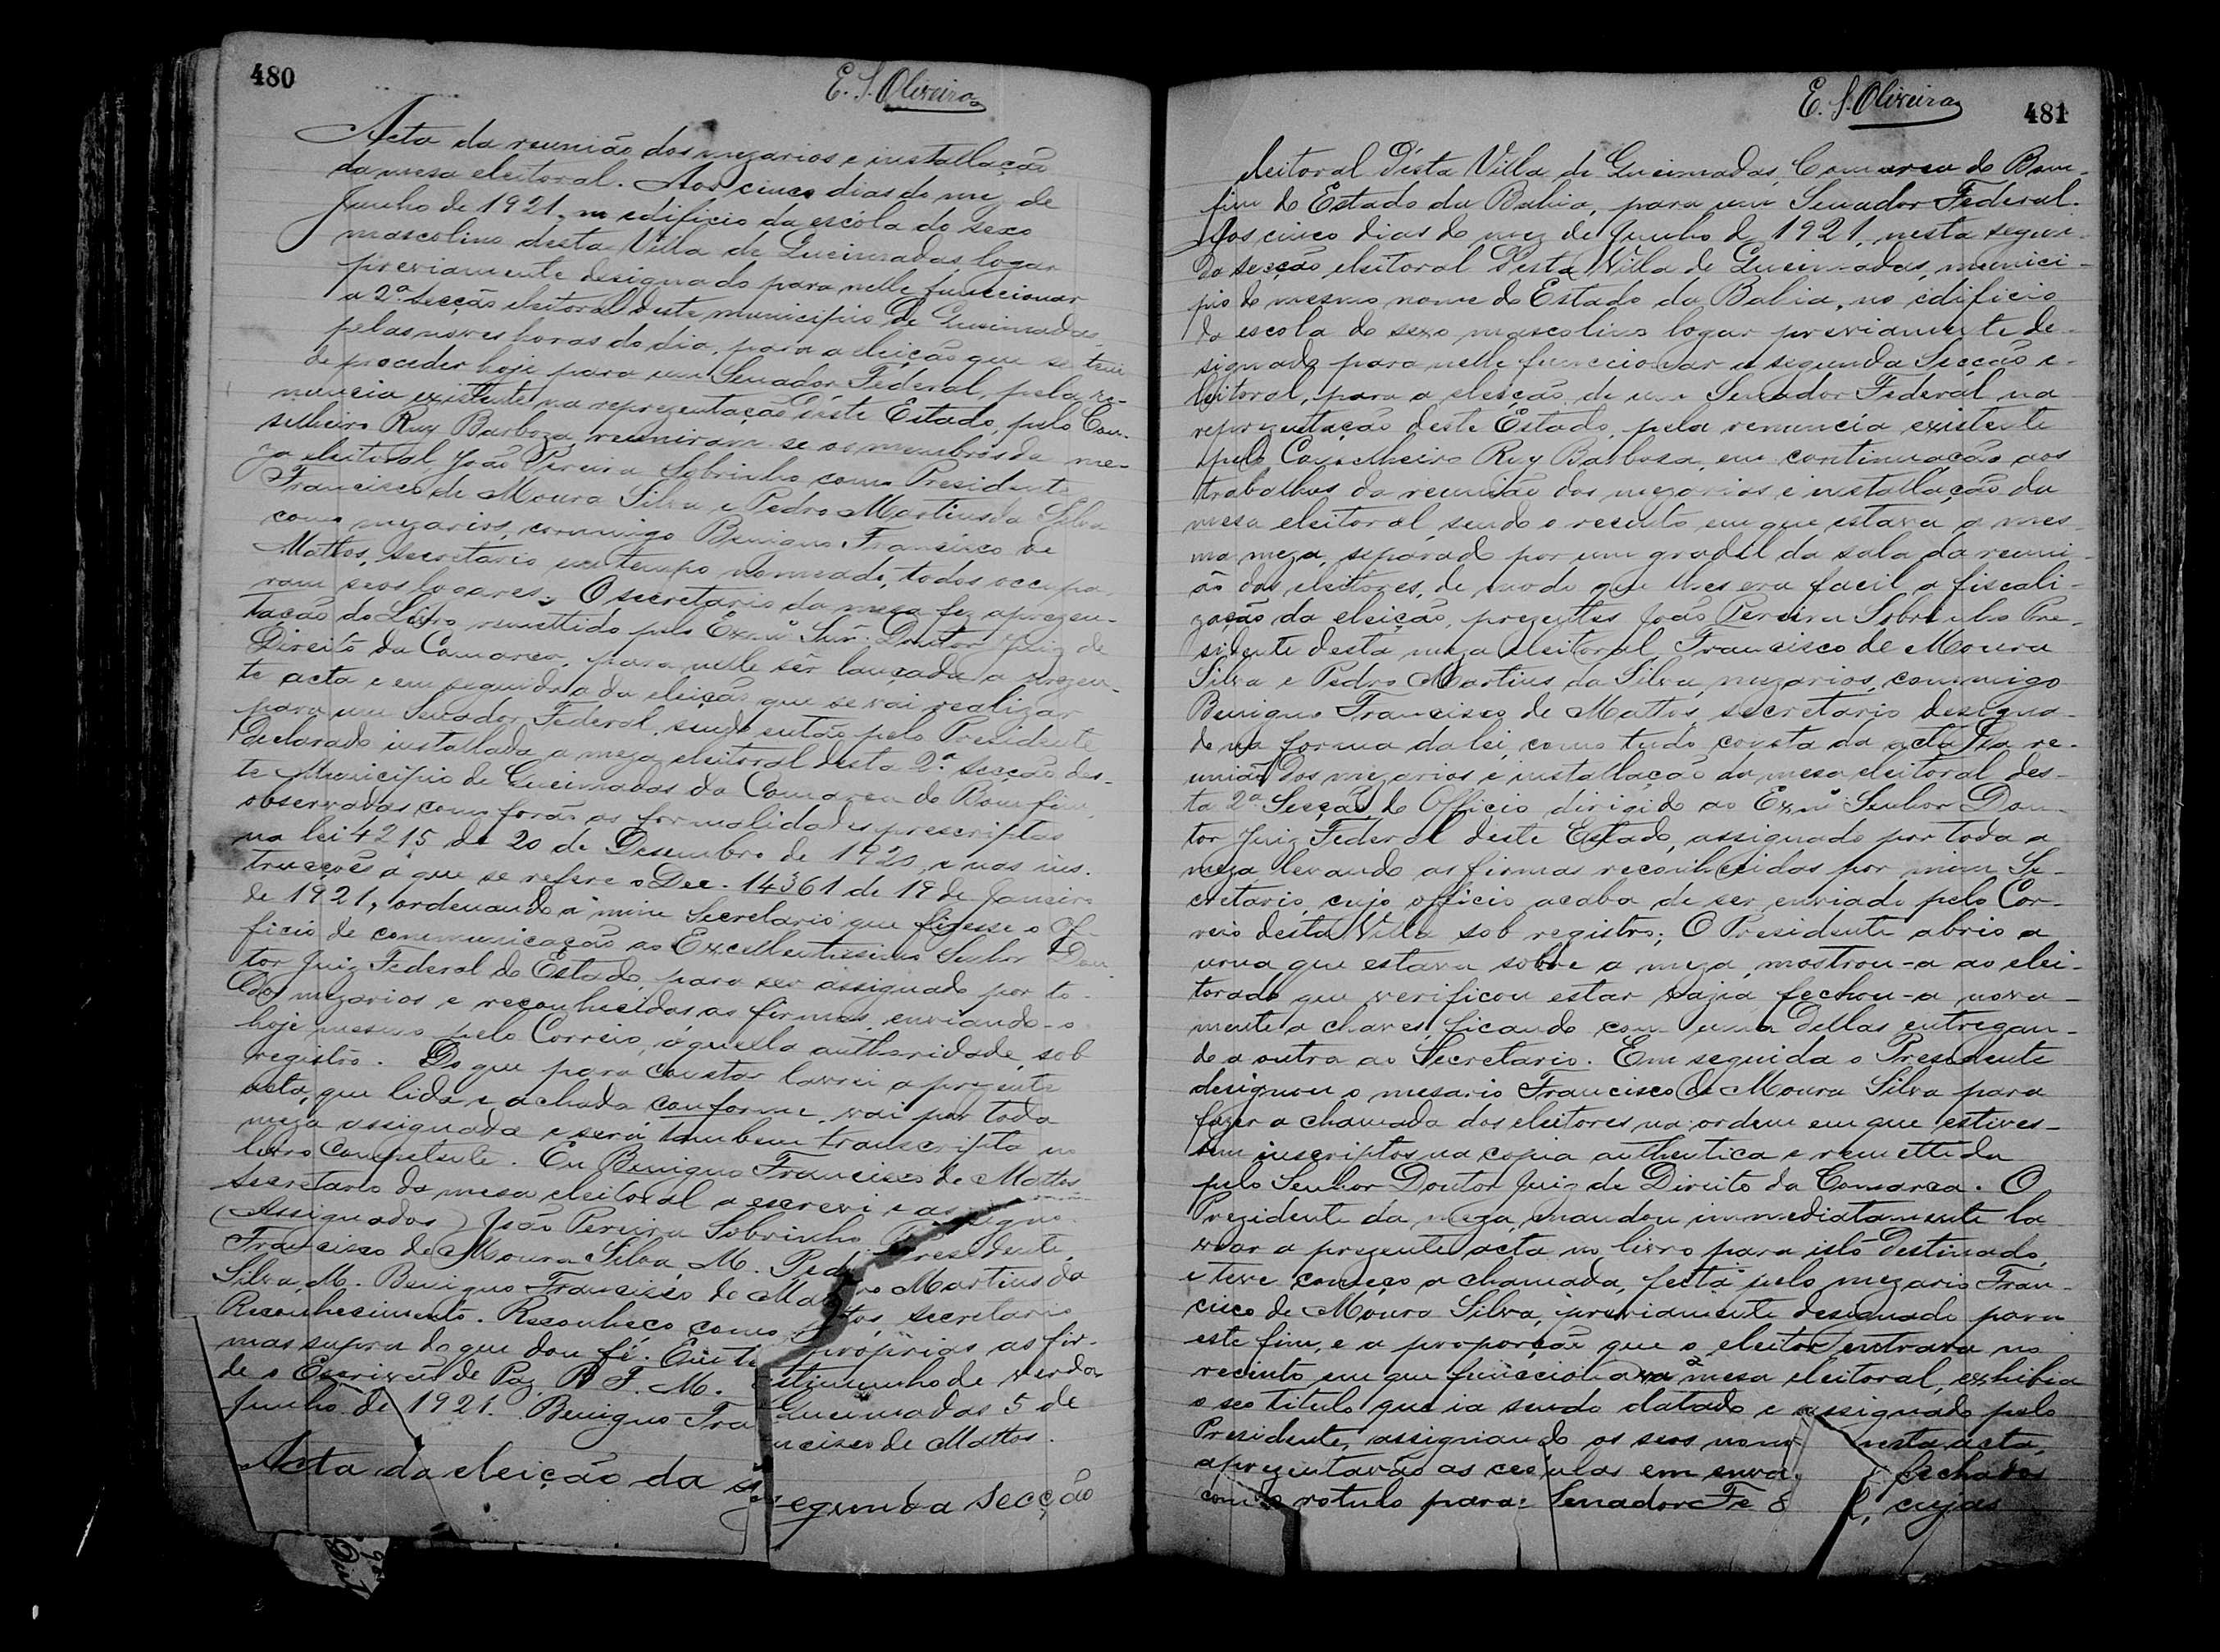 480
E. S. Oliveira
Acta da reunião dos mezarios e installação
da mesa eleitoral. Aos cinco dias do mez de
Junho de 1921, no edificio da escóla do sexo
mascolino desta Villa de Queimadas, logar
previamente designado para nelle funccionar
a 2ª Secção eleitoral deste municipio de Queimadas,
pelas noves horas do dia, para a eleição que se tem
de proceder hoje para um Senador Federal, pela re-
nuncia existente na reprezentação deste Estado, pelo Con-
selheiro Ruy Barboza, reuniram-se os membros da me-
za eleitoral João Pereira Sobrinho como Presidente
Francisco de Moura Silva e Pedro Martins da Silva
como mezarios, commigo Benigno Francisco de
Mattos, secretario em tempo nomeado, todos occupa-
ram seos logares. O secretario da meza fez aprezen-
tação do Livro remettido pelo Exmº Snr. Doutor Juiz de
Direito da Comarca, para nelle sêr lançada a prezen-
te acta e em seguida a da eleição que se vai realizar
para um Senador Federal, sendo então pelo Presidente
declarado installada a meza eleitoral desta 2ª Secção des-
te Municipio de Queimadas da Comarca do Bomfim,
observadas como forão as formalidades prescriptas
na lei 4215 de 20 de Desembro de 1920, e nas ins-
trucções a que se refere o Dec. 14361 de 19 de Janeiro
de 1921, ordenando a mim Secretario que fizesse o Of-
ficio de communicação ao Excellentissimo Senhor Dou-
tor Juiz Federal do Estado, para ser assignado por to-
dos mezarios e reconhecidas as firmas, enviando-o
hoje mesmo pelo Correio, áquella authoridade, sob
registro. Do que para constar lavrei a prezente
acta, que lida e achada conforme, vai por toda
meza assignada e será tambem transcripta no
livro competente. Eu Benigno Francisco de Mattos
secretario da mesa eleitoral a escrevi e assigno.
(Assignados) João Pereira Sobrinho, Presidente,
Francisco de Moura Silva, M. Pedro Martins da
Silva, M. Benigno Francisco de Mattos, secretario
Reconhesimento. Reconheco como proprias as fir-
mas supra do que dou fé. Em testimunho de verda-
de o Escrivão de Paz B F. M. Queimadas 5 de
Junho de 1921. Benigno Francisco de Mattos.
Acta da eleição da segunda secção
E. S. Oliveira
481
eleitoral désta Villa de Queimadas, Comarca do Bom-
fim do Estado da Bahia, para um Senador Federal.
Aos cinco dias do mez de Junho de 1921, nesta segun-
da secção eleitoral désta Villa de Queimadas, munici-
pio do mesmo nome do Estado da Bahia, no edificio
da escola do sexo mascolino logar previamente de-
signado para nelle funccionar a segunda Secção e-
leitoral, para a eleição de um Senador Federal na
reprezentação deste Estado, pela renuncia existente
pelo Conselheiro Ruy Barbosa, em continuação aos
trabalhos da reunião dos mezarios e installação da
mesa eleitoral, sendo o recinto em que estava a mes-
ma meza, separado por um gradil da sala da reuni-
ão dos eleitores, de modo que lhes era facil a fiscali-
zação da eleição, prezentes João Pereira Sobrinho Pre-
sidente desta meza eleitoral, Francisco de Moura
Silva e Pedro Martins da Silva, mezarios, commigo
Benigno Francisco de Mattos, secretario designa-
do na forma da lei, como tudo consta da acta da re-
união dos mezarios e installação da mesa eleitoral des-
ta 2ª Secção do Officio dirigido ao Exmº Senhor Dou-
tor Juiz Federal deste Estado, assignado por toda a
meza levando as firmas reconhecidas por mim Se-
cretario, cujo officio acaba de ser enviado pelo Cor-
reio desta Villa sob registro; O Presidente abrio a
urna que estava sobre a meza, mostrou-a ao elei-
torado que verificou estar vazia fechou-a nova-
mente a chaves, ficando com uma dellas entregan-
do a outra ao Secretario. Em seguida o Presidente
designou o mesario Francisco de Moura Silva para
fazer a chamada dos eleitores na ordem em que estives-
sem inscriptos na copia authentica e remettida
pelo Senhor Doutor Juiz de Direito da Comarca. O
Prezidente da meza, mandou immediatamente la
vrar a prezente acta no livro para isto destinado,
e teve começo a chamada, feita pelo mezario Fran-
cisco de Moura Silva, previamente designado para
este fim, e a proporção que o eleitor entrava no
recinto em que funccionava a mesa eleitoral, exhibia
o seo titulo que ia sendo datado e assignado pelo
Presidente, assignando os seos nomes nesta acta,
aprezentavão as cedulas em fechados
com o rotulo para: Senador Fe l, cujas